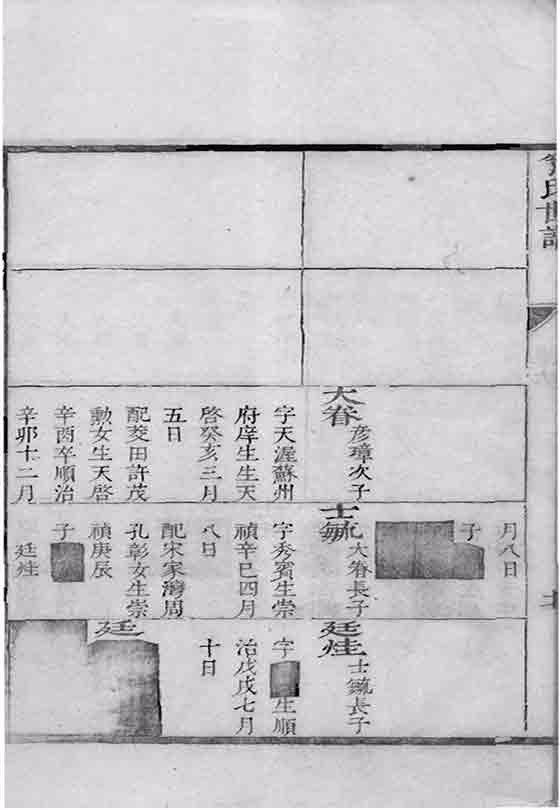 氏世譜
大眷
彦璋次子
字天渥蘇州
府庠生生天
啓癸亥三月
五日
配茭田許茂
勲女生天啓
辛酉卒順治
辛卯十二月
月八日
子
士毓
大眷長子
字秀賓生崇
禎辛巳四月
八日
配宋家灣周
孔彰女生崇
禎庚辰
子
廷烓
廷烓
士毓長子
字 生順
治戊戌七月
十日
廷